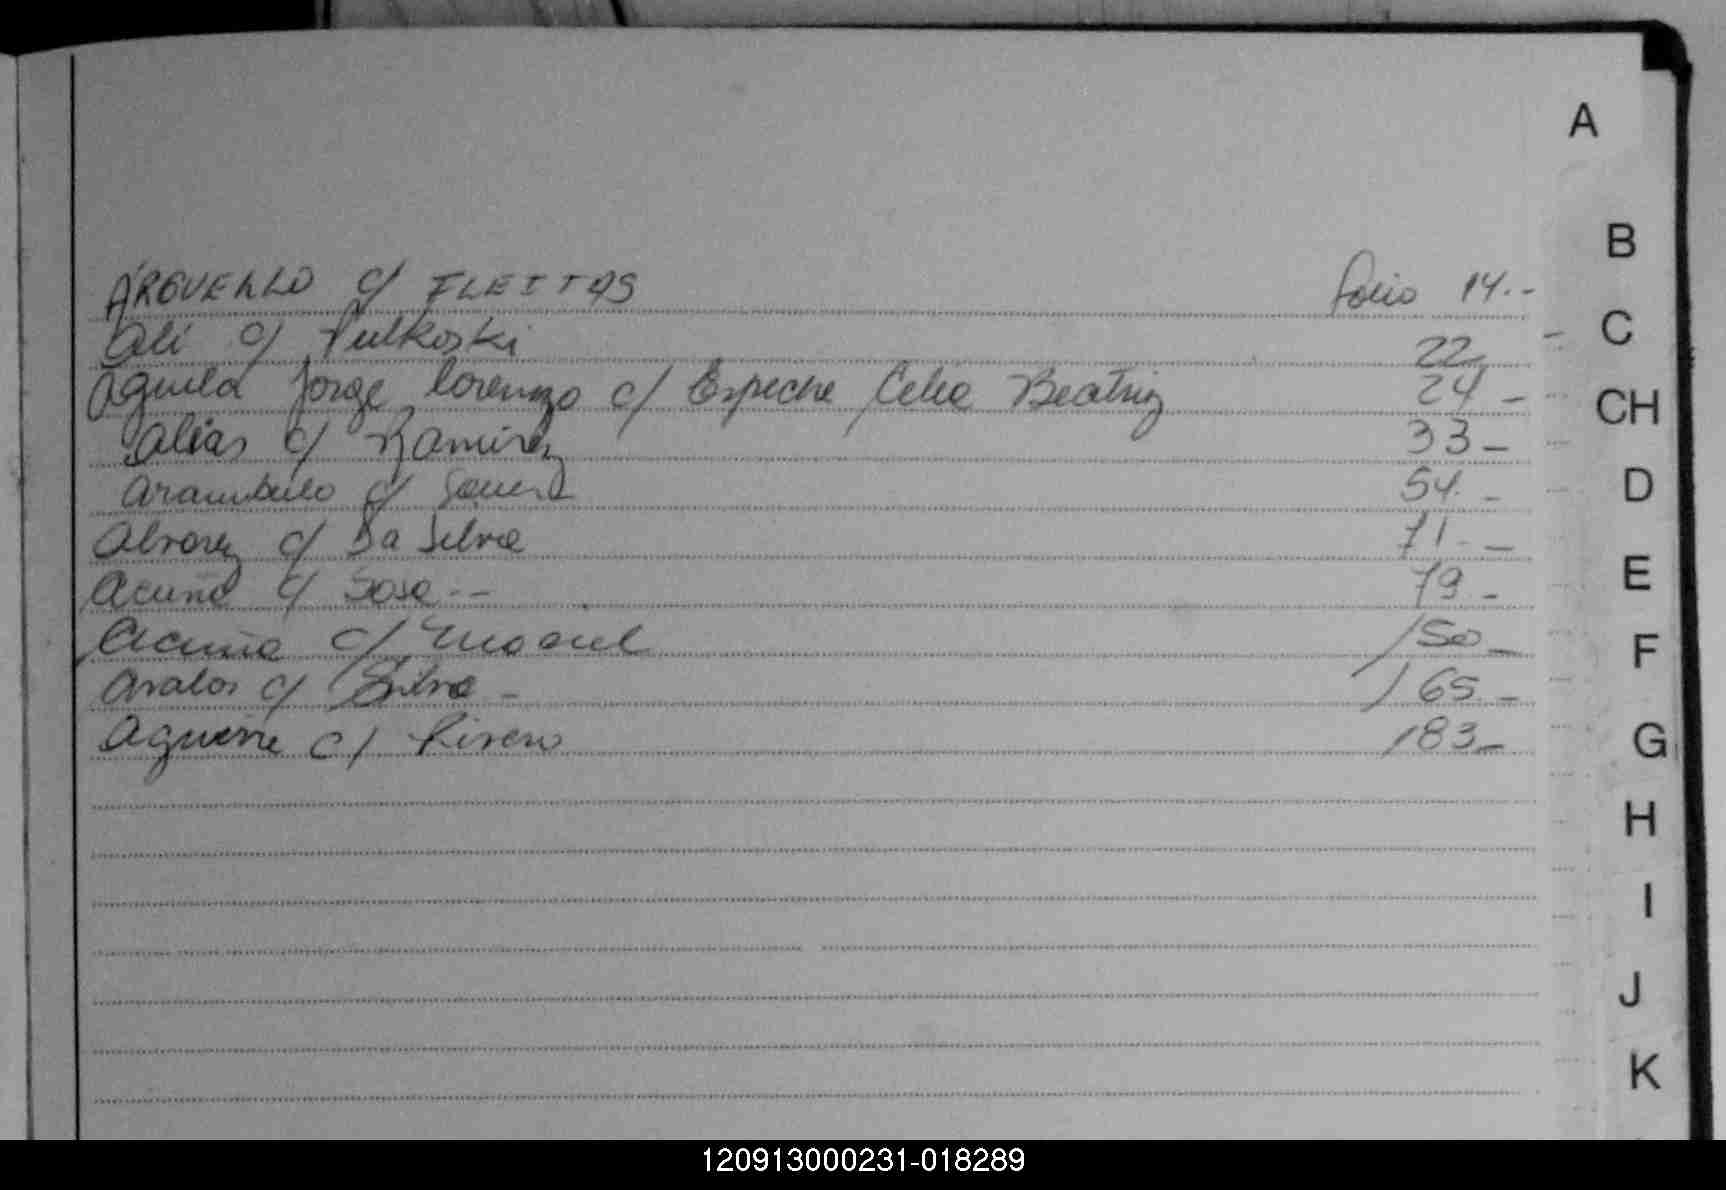 ARGUELLO c/ FLEITAS folio 14.--
Ali c/ Pulkoski 22
Aguila Jorge Lorenzo c/ Espeche Celia Beatriz 24 -
Alias c/ Ramirez 33 -
Arambulo c/ 54. -
Alvarez c/ Da Silva 71. -
Acuña c/ Sosa -- 79 -
Acuña c/ 150 -
Avalos c/ Silva - 165 -
Aguirre c/ Rivero 183 -
A
B
C
CH
D
E
F
G
H
I
J
K
120913000231-018289